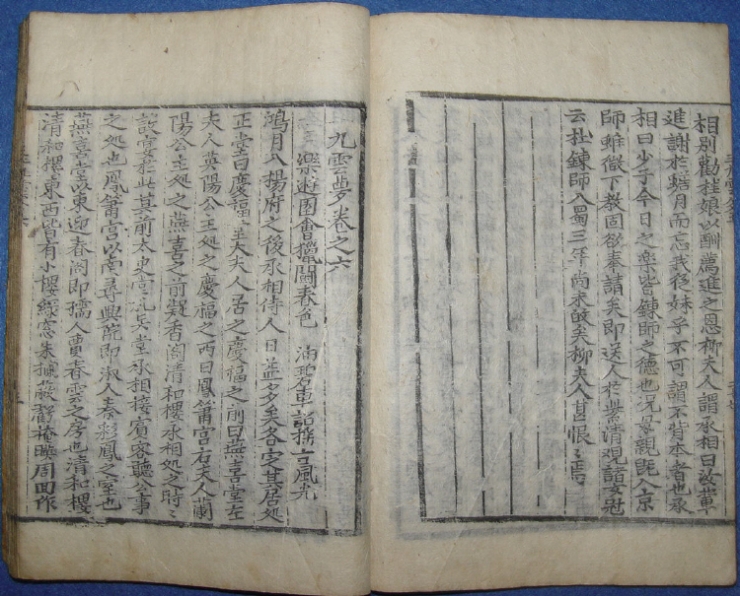 相別勸桂娘以酬薦進之恩柳夫人謂承相曰汝輩
進謝於蟾月而忘我從妹乎不可謂不背本者也承
相曰少子今日之樂皆鍊師之德也况母親旣入京
師雖微下教固欲奉請矣即送人於紫清觀諸女冠
云杜鍊師入蜀三年尚未故矣柳夫人甚恨〻焉
九雲夢卷之六
樂遊園會獵鬪春色 油碧車詔搖占風光
鴻月入楊府之後承相侍人日益多矣各定其居処
正堂曰慶福堂大夫人居之慶福之前曰燕喜堂左
夫人英陽公主処之慶福之西曰鳳簫宮右夫人蘭
陽公主処之燕喜之前凝香閣清和樓承相処之時〻
設宴於此其前太史堂礼兵堂承相接賓客聽公事
之処也鳳簫宮以南尋興院即淑人秦彩鳳之室也
燕喜堂以東迎春閣即孺人賈春雲之房也清和樓
清和樓東西皆有小樓綠窓朱掩映周回作